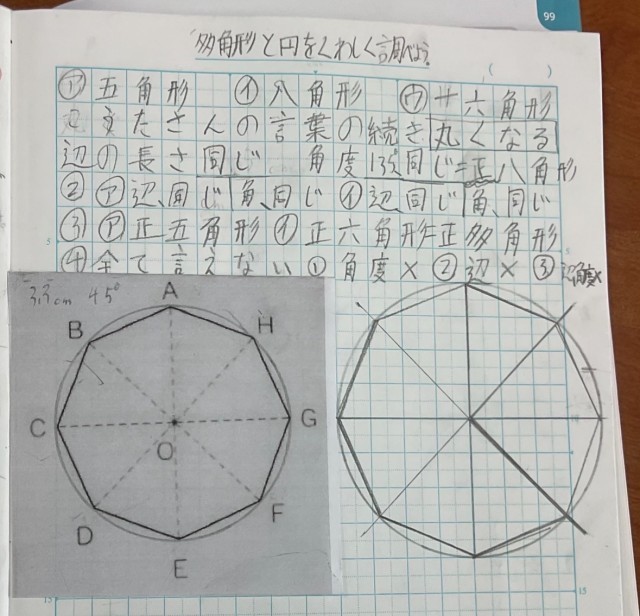 99
多角形と円をくわしく調べよう
( )
㋐五角形 ㋑八角形 ㋒十六角形
たさんの言葉の続き丸くなる
辺の長さ同じ 角度135同じ=正八角形
②㋐辺、同じ角、同じ ㋑辺、同じ角、同じ
③㋐正五角形㋑正六角形=正多角形
④全て言えない①角度×②辺×③
3.3cm 45°
A
B
H
C
O
G
D
F
E
5
15
5
10
15